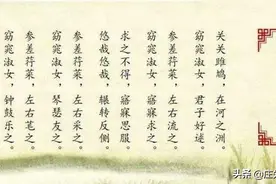 关关雎鸠，在河之洲。
窈窕淑女，君子好逑。
参差荇菜，左右流之。
窈窕淑女，寤寐求之。
求之不得，寤寐思服。
悠哉悠哉，辗转反侧。
参差荇菜，左右采之。
窈窕淑女，琴瑟友之。
参差荇菜，左右笔之。
窈窕淑女，钟鼓乐之。